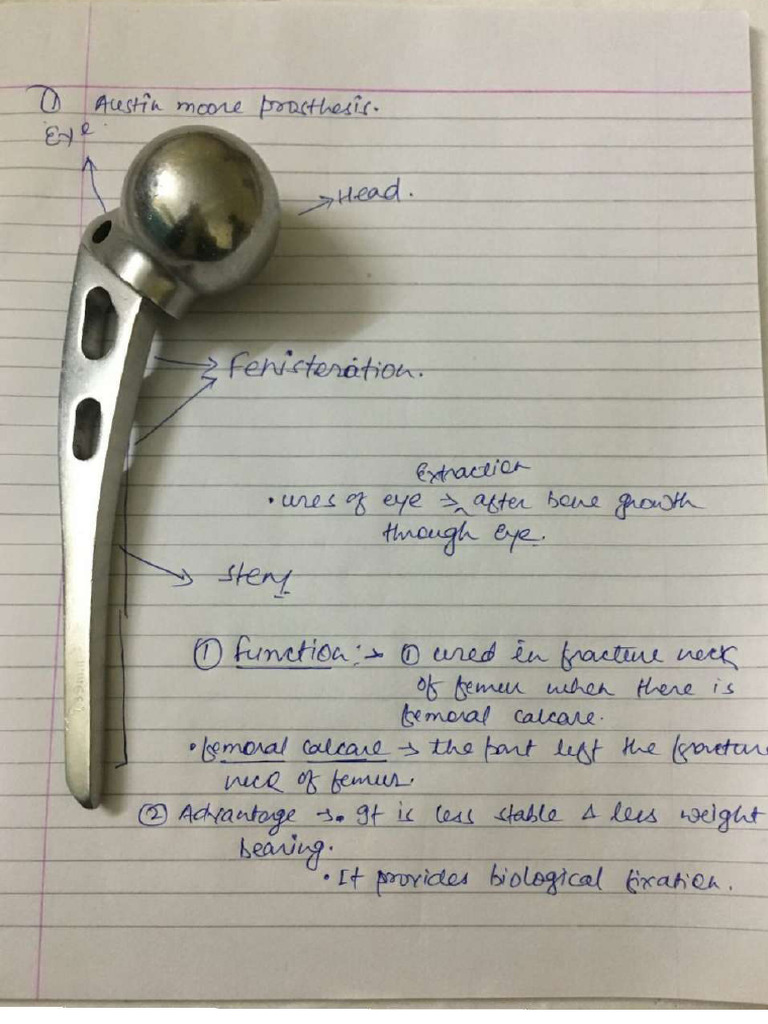 ① Austin moore prosthesis.
Eye
Head.
Fenisteration.
Extraction
• uses of eye → ^ after bone growth
through eye.
Stem
① Function :→ ① used in fracture neck
of femur when there is
femoral calcare.
• femoral calcare → the part left the fracture
neck of femur.
② Advantage →. It is less stable & less weight
bearing.
• It provides biological fixation.